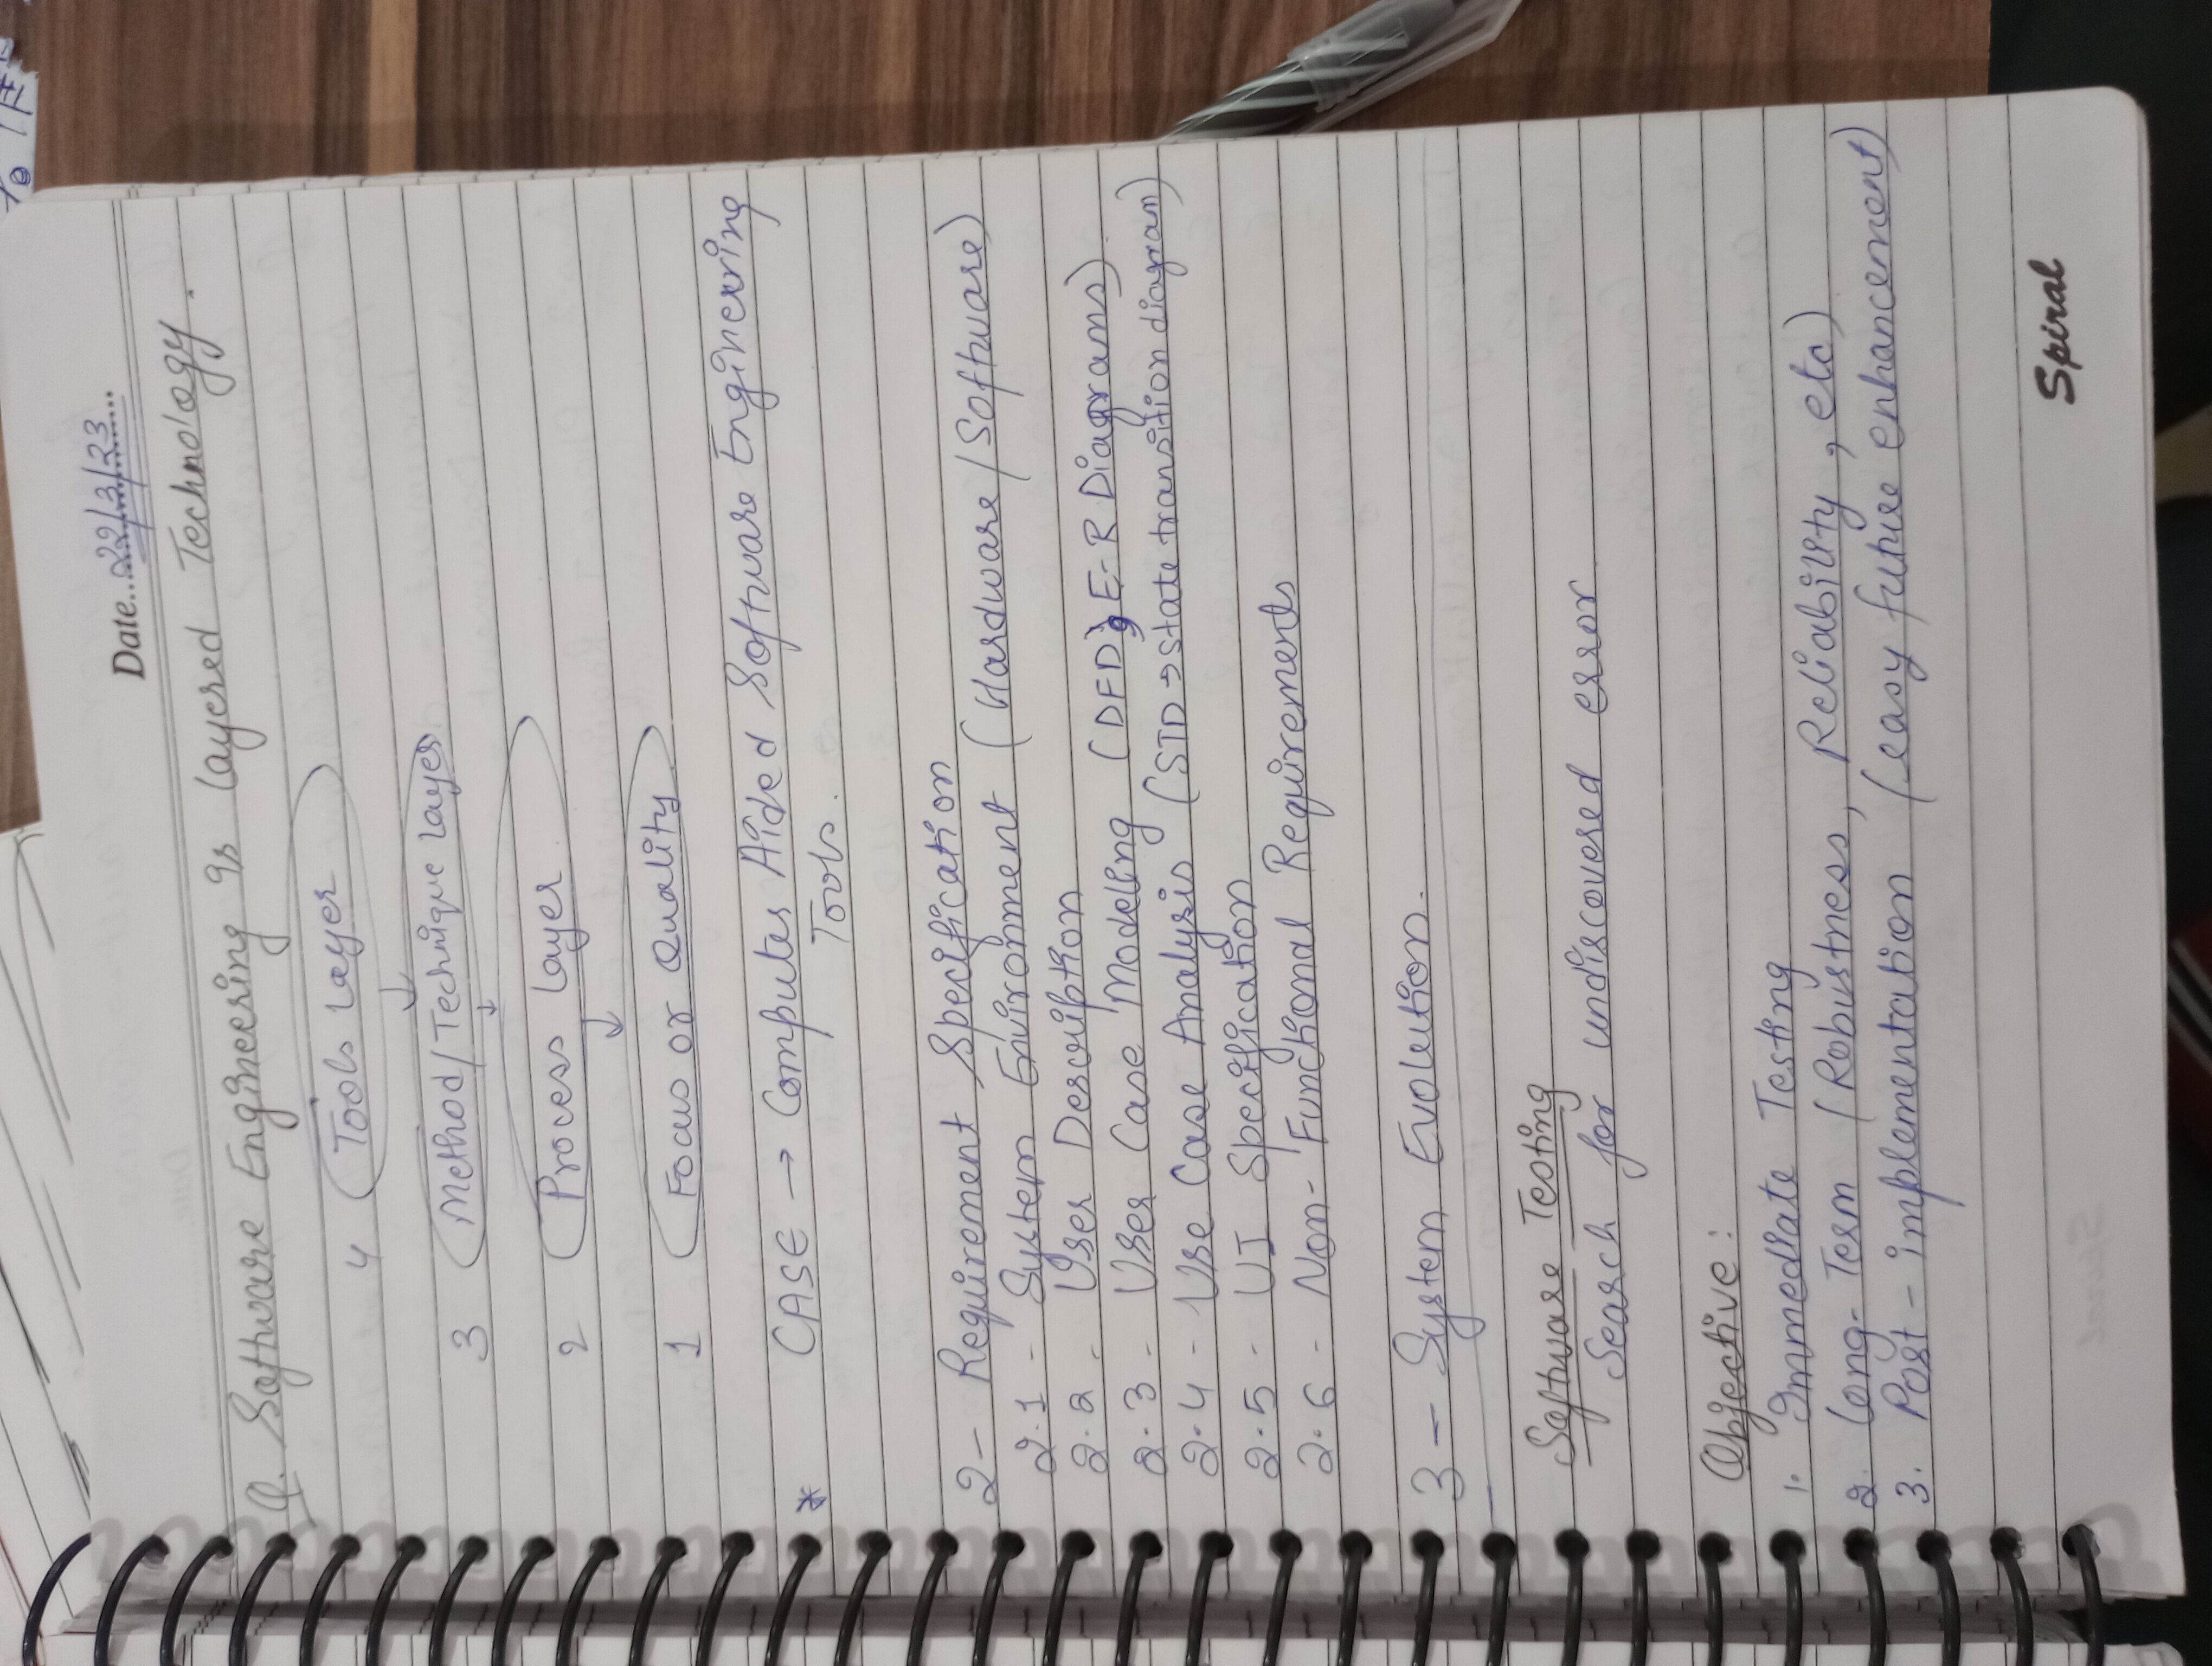 Date.. 22/3/23
Q. Software Engineering is layered Technology.
4 Tools layer
3 Method/Technique layer
2 Process layer
1 Focus or Quality
* CASE → Computer Aided Software Engineering
Tools.
2- Requirement Specification
2.1 - System Environment (Hardware/Software)
2.2. User Description
2.3 - User Case Modelling (DFD, E-R Diagrams)
2.4 - Use Case Analysis (STD → state transition diagram)
2.5 - UI Specification
2.6 - Non-Functional Requirements
3 - System Evolution.
Software Testing
Search for undiscovered error
Objective:
1. Immediate Testing
2. long-Term (Robustness, Reliability, etc)
3. Post-implementation (easy future enhancement)
Spiral